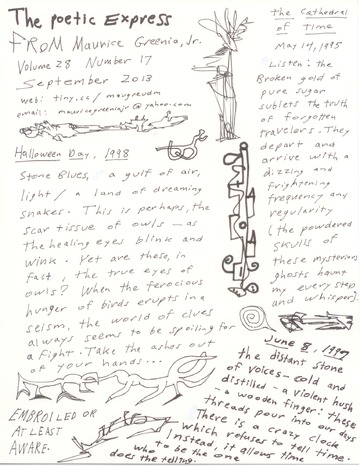 The Poetic Express
FROM Maurice Greenia, Jr.
Volume 28 Number 17
September 2013
web: tiny.cc/maugreudm
email: mauricegreeniajr@yahoo.com
Halloween Day, 1998
Stone Blues, a gulf of air,
light / a land of dreaming
snakes. This is perhaps, the
scar tissue of owls - as
the healing eyes blink and
wink. Yet are these, in
fact, the true eyes of
owls? When the ferocious
hunger of birds erupts in a
seism, the world of clues
always seems to be spoiling for
a fight. Take the ashes out
of your hands...
EMBROILED OR
AT LEAST
AWARE.
The Cathedral
of Time
May 19, 1995
Listen: the
Broken gold of
pure sugar
sublets the truth
of forgotten
travelors. They
depart and
arrive with a
dizzing and
frightening
frequency and
regularity
(the powdered
skulls of
these mysterious
ghosts haunt
my every step
and whisper).
June 8, 1997
the distant stone
of voices - cold and
distilled - a violent hush
- a wooden finger: these
threads pour into our days
There is a crazy clock
which refuses to tell time.
Instead, it allows time
to be the one who
does the telling.